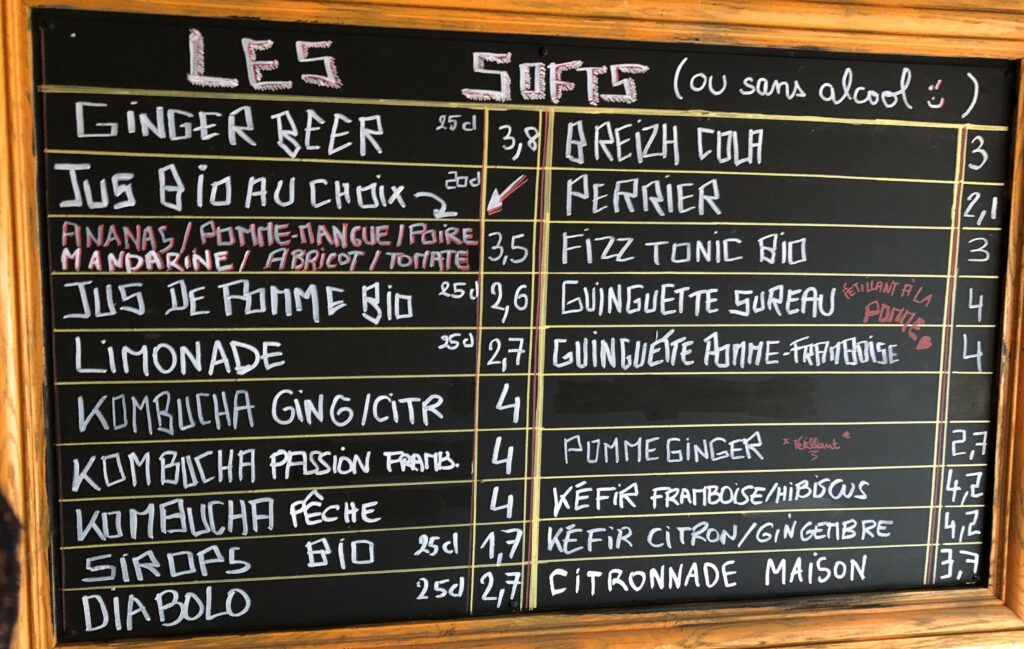 LES SOFTS (ou sans alcool :)
GINGER BEER 25cl 3,8
JUS BIO AU CHOIX 20cl
ANANAS / POMME-MANGUE / POIRE
MANDARINE / ABRICOT / TOMATE 3,5
JUS DE POMME BIO 25cl 2,6
LIMONADE 25cl 2,7
KOMBUCHA GING/CITR 4
KOMBUCHA PASSION FRAMB. 4
KOMBUCHA PÊCHE 4
SIROPS BIO 25cl 1,7
DIABOLO 25cl 2,7
BREIZH COLA 3
PERRIER 2,1
FIZZ TONIC BIO 3
GUINGUETTE SUREAU PÉTILLANT À LA POMME 4
GUINGUETTE POMME-FRAMBOISE 4
POMME GINGER *Pétillant* 2,7
KÉFIR FRAMBOISE/HIBISCUS 4,2
KÉFIR CITRON/GINGEMBRE 4,2
CITRONNADE MAISON 3,7